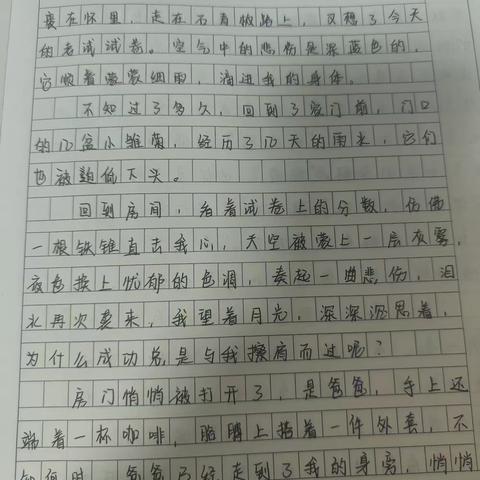 裹在怀里，走在石青板路上，又想了今天
的考试试卷。空气中的悲伤是深蓝色的，
它顺着蒙蒙细雨，滴进我的身体。
不知过了多久，回到了家门前，门口
的几盆小雏菊，经历了几天的雨水，它们
也被迫低下头。
回到房间，看着试卷上的分数，仿佛
一根铁锥直击我心，天空被蒙上一层灰雾，
夜色换上忧郁的色调，奏起一曲悲伤，泪
水再次袭来，我望着月光，深深沉思着，
为什么成功总是与我擦肩而过呢？
房门悄悄被打开了，是爸爸，手上还
端着一杯咖啡，胳膊上搭着一件外套，不
知何时，爸爸已经走到了我的身旁，悄悄